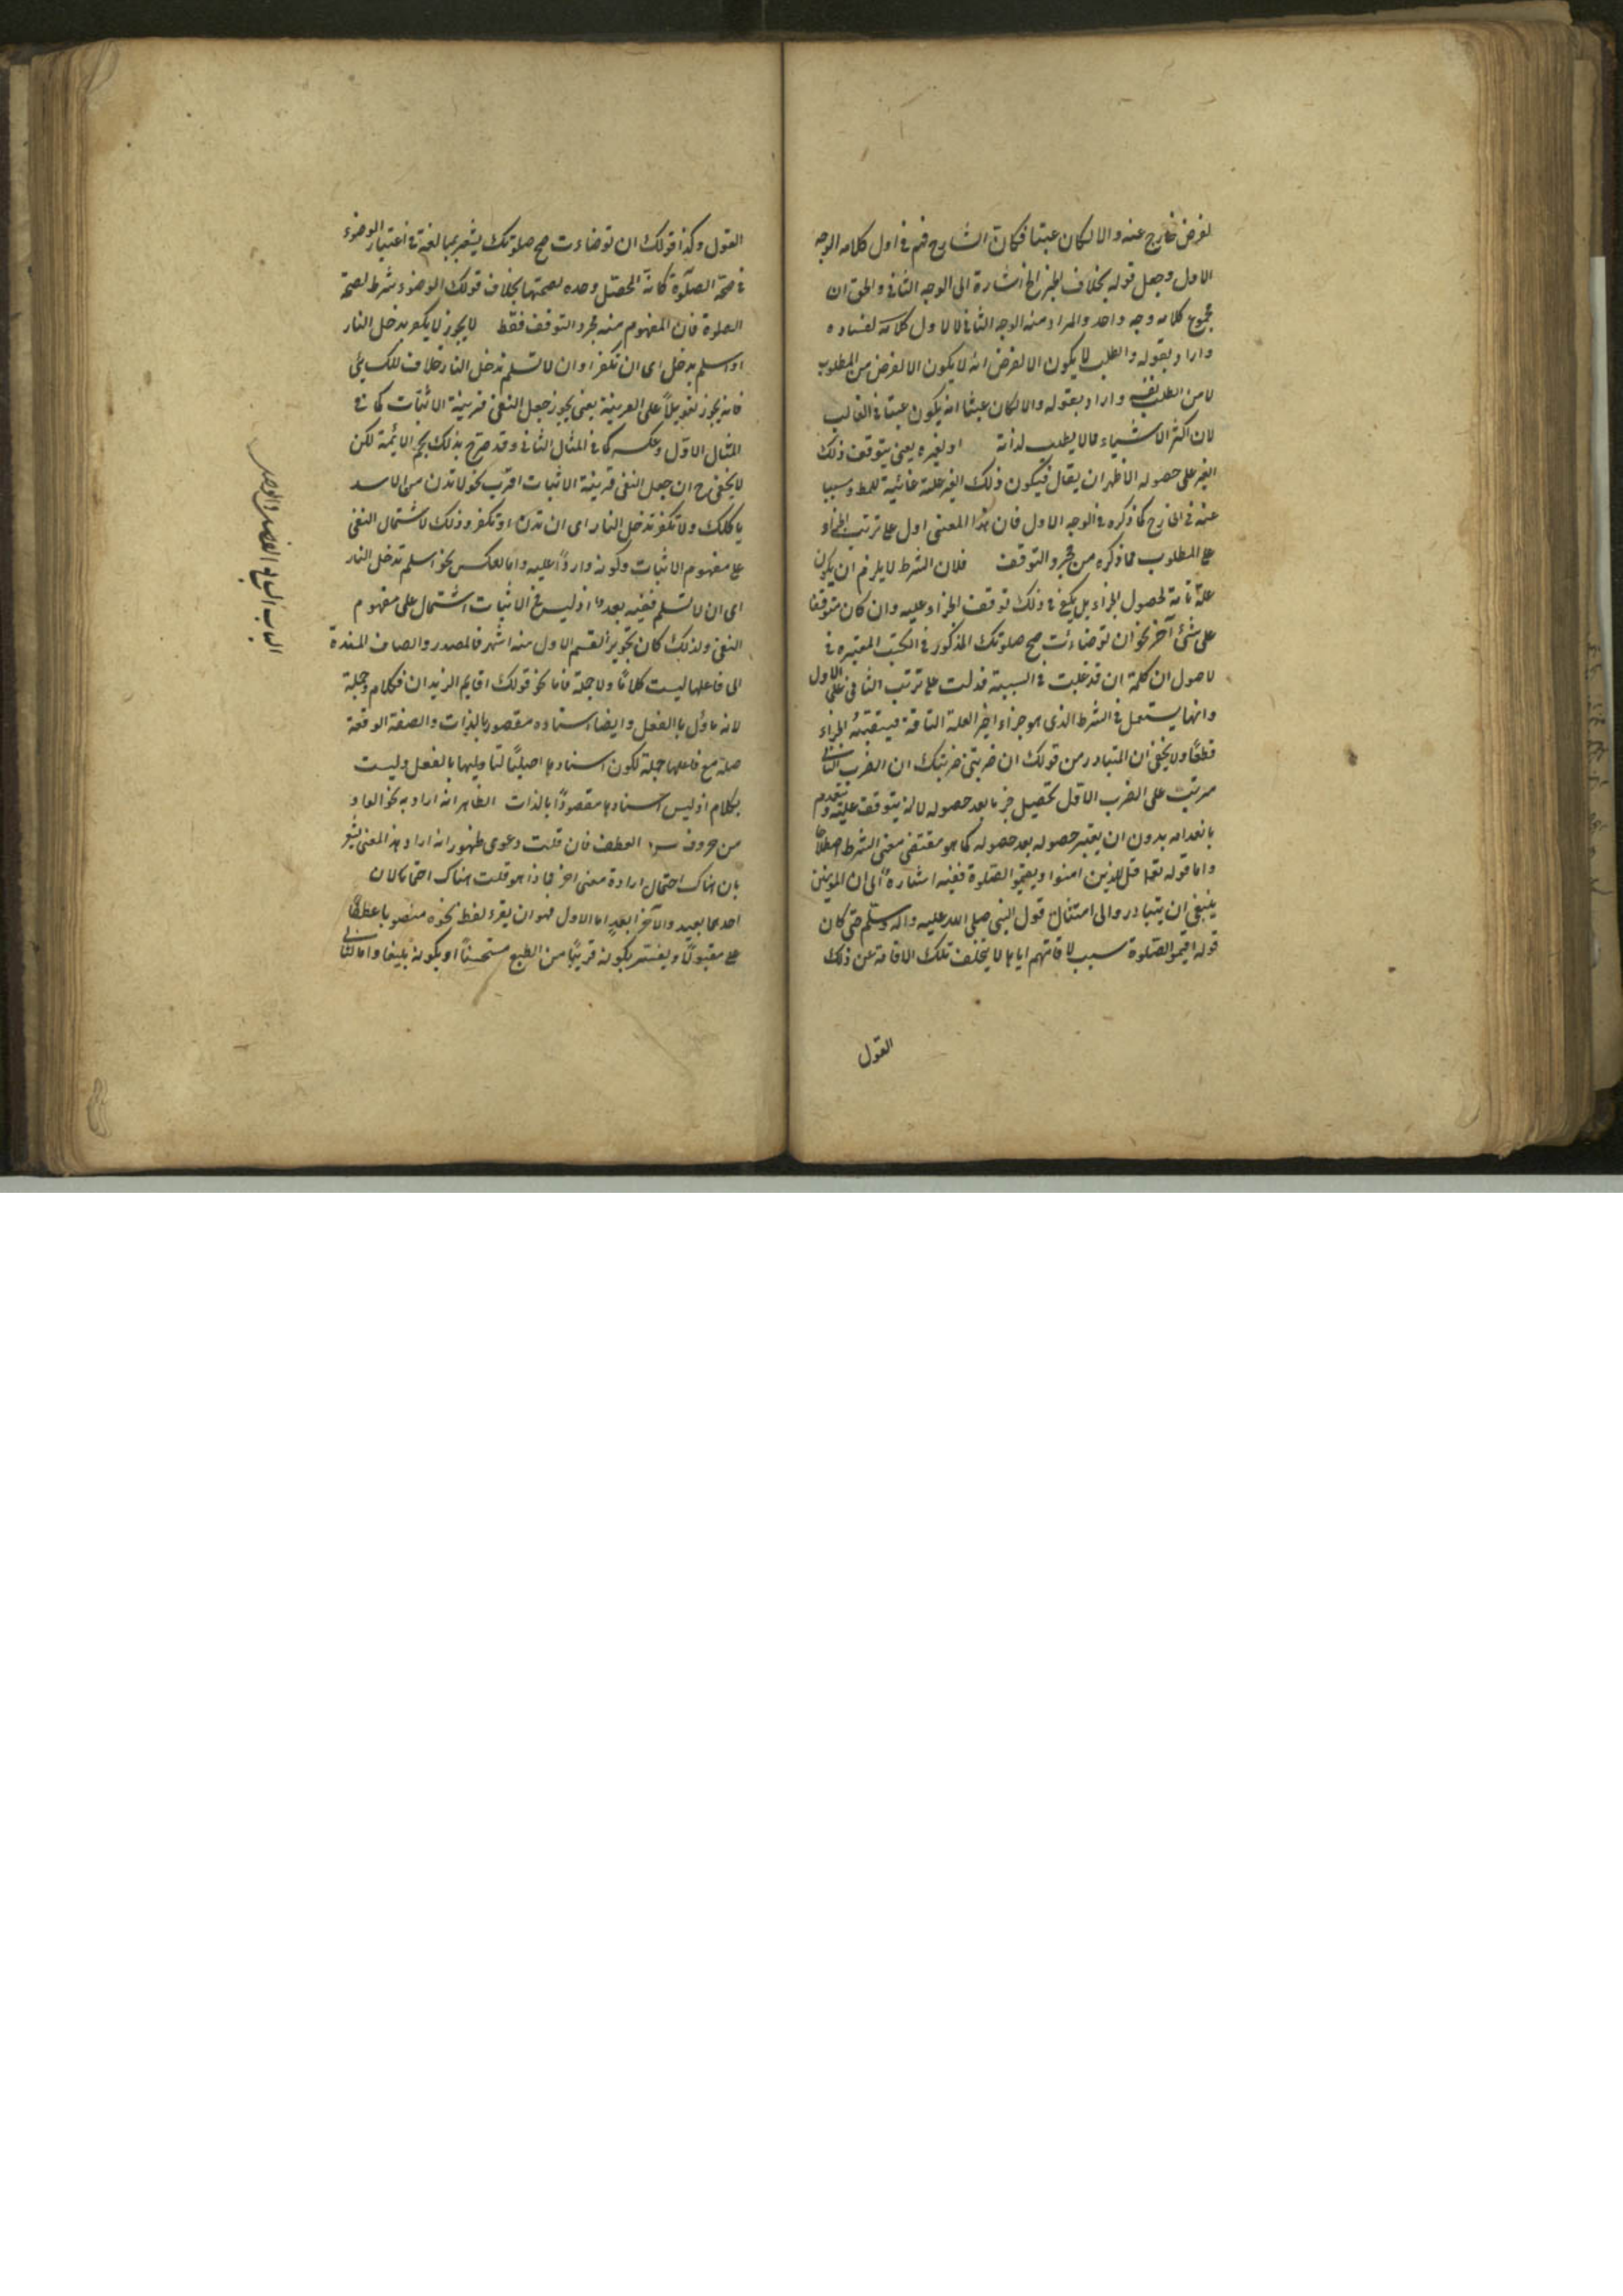 لغرض خارج عنه والا لكان عبثا فكان الشارح فهم في اول كلامه الوجه
الاول وجعل قوله بخلاف الخبر الخ اشارة الى الوجه الثاني والحق ان
مجموع كلامه وجه واحد والمراد منه الوجه الثاني لا لاول كلامه لفساده
واراد بقوله والطلب لا يكون الا لغرض انه لا يكون الا لغرض من المطلوب
لا من الطلب نفسه واراد بقوله والا لكان عبثا انه يكون عبثا في الغالب
لان اكثر الاشياء مما لا يطلب لذاته او لغيره يعني يتوقف ذلك
الغير على حصوله الاظهر ان يقال فيكون ذلك الغير علة غائية للمط وسببا
عنه في الخارج كما ذكره في الوجه الاول فان هذا المعنى ادل على ترتب الجزاء
على المطلوب مما ذكره من مجرد التوقف فلان الشرط لا يلزم ان يكون
علة تامة لحصول الجزاء بل يكفي في ذلك توقف الجزاء عليه وان كان متوقفا
على شئ آخر نحو ان توضاءت صح صلوتك المذكور في الكتب المعتبره في
لاصول ان كلمة ان قد غلبت في السببية فدلت على ترتب الثاني على الاول
وانها يستعمل في الشرط الذي هو جزاء اخير العلة التامة فيتعقبه الجزاء
قطعا ولا يخفى ان المتبادر من قولك ان ضربتني ضربتك ان الضرب الثاني
مرتب على الضرب الاول تحصيل جزما بعد حصوله لا انه يتوقف عليه وينعدم
بانعدامه بدون ان يعتبر حصوله بعد حصوله كما هو مقتضى معنى الشرط اصطلاحا
واما قوله تعالى قل للذين امنوا ويقيموا الصلوة ففيه اشارة الى ان المومنين
ينبغي ان يتبادروا الى امتثال قول النبي صلى الله عليه واله وسلم حتى كان
قوله اقيموا الصلوة سبب لاقامتهم اياها لا يتخلف تلك الاقامة عن ذلك
القول
القول وكذا قولك ان توضاءت صح صلوتك يشعر بمبالغة في اعتبار الوضوء
في صحة الصلوة كانه المحصل وحده لصحتها بخلاف قولك الوضوء شرط لصحة
الصلوة فان المفهوم منه مجرد التوقف فقط لا يجوز لا تكفر تدخل النار
او اسلم تدخل اى ان تكفر او ان لا تسلم تدخل النار خلافا للكسائي
فانه يجوز تعويلا على القرينة يعني يجوز جعل النفي قرينة الاثبات كما في
المثال الاول وعكسه كما في المثال الثاني وقد صرح بذلك نجم الائمة لكن
لا يخفى ح ان جعل النفي قرينة الاثبات اقرب نحو لا تدن من الاسد
ياكلك ولا تكفر تدخل النار اى ان تدن او تكفر وذلك لاشتمال النفي
على مفهوم الاثبات وكونه واردا عليه واما لعكس نحو اسلم تدخل النار
اى ان لا تسلم ففيه بعد ما اذ ليس في الاثبات اشتمال على مفهوم
النفي ولذلك كان تجويز القسم الاول منه اشهر فالمصدر والصفات المسندة
الى فاعلها ليست كلاما ولا جملة فاما نحو قولك اقايم الزيدان فكلام وجملة
لانه ماؤل بالفعل وايضا اسناده مقصور بالذات والصفة الواقعة
صلة مع فاعلها جملة لكون اسنادها اصليا لتاويلها بالفعل وليست
بكلام اذ ليس اسنادها مقصودا بالذات الظاهر انه اراد به نحو الواو
من حروف العطف فان قلت دعوى ظهور انه اراد هذا المعنى يشعر
بان هناك احتمال ارادة معنى اخر فماذا هو قلت هناك احتمالان
احدهما بعيد والآخر ابعد اما الاول فهو ان يقرء لفظ نحوه منصوبا عطفا
على مقبولا ويفسر بكونه قريبا من الطبع مستحسنا او بكونه بليغا واما الثاني
الباب السابع الفصل والوصل